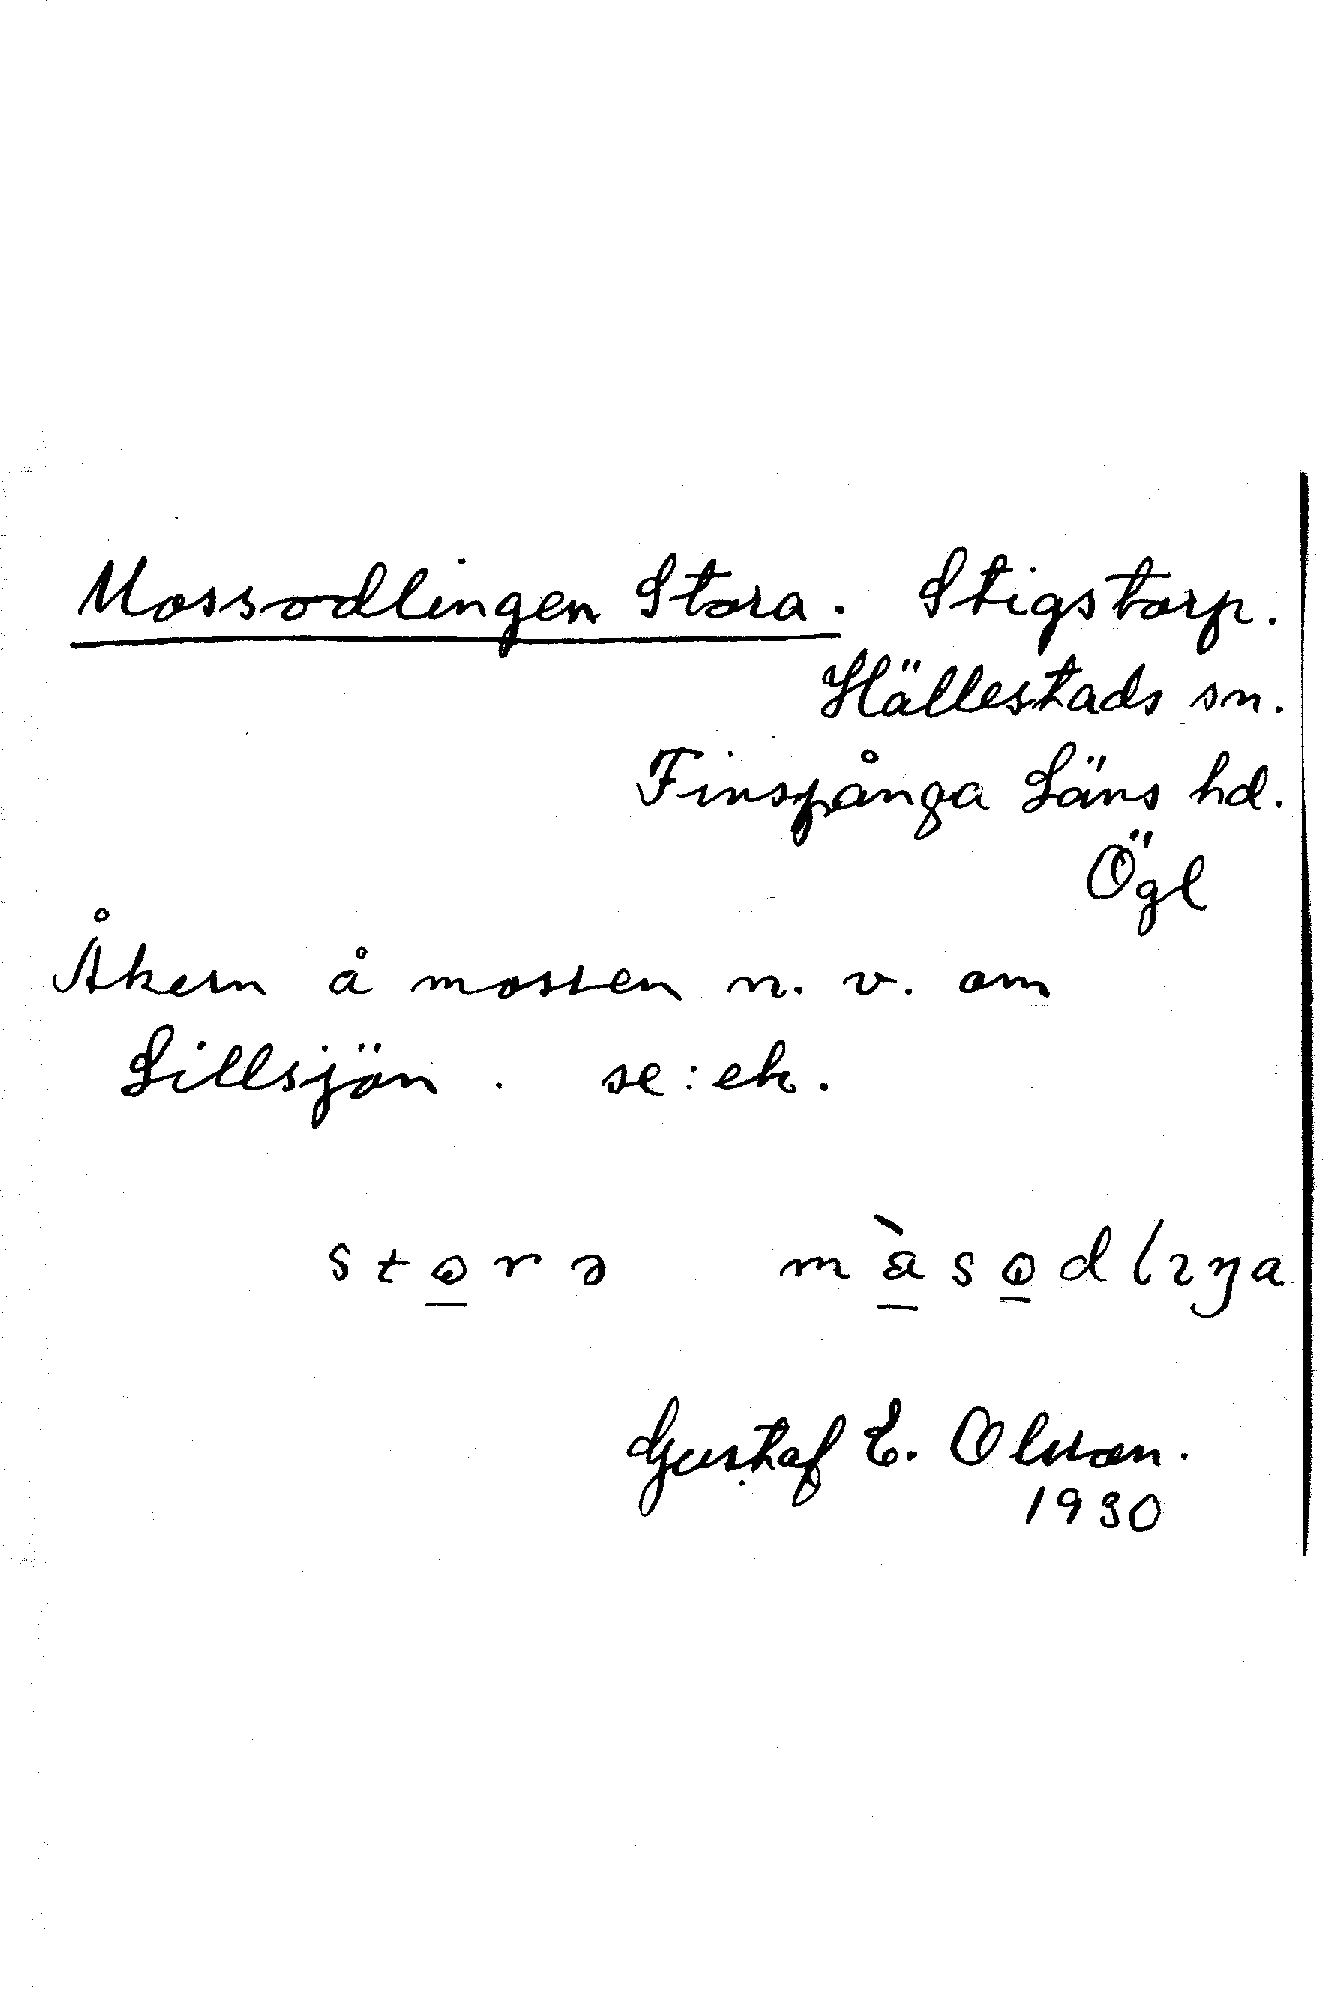 Mossodlingen Stora. Stigstorp.
Hällestads sn.
Finspånga Läns hd.
Ögl
Åkern å mossen n. v. om
Lillsjön. se: ek.
storə màsodlıŋa
Gustaf E. Olsson.
1930